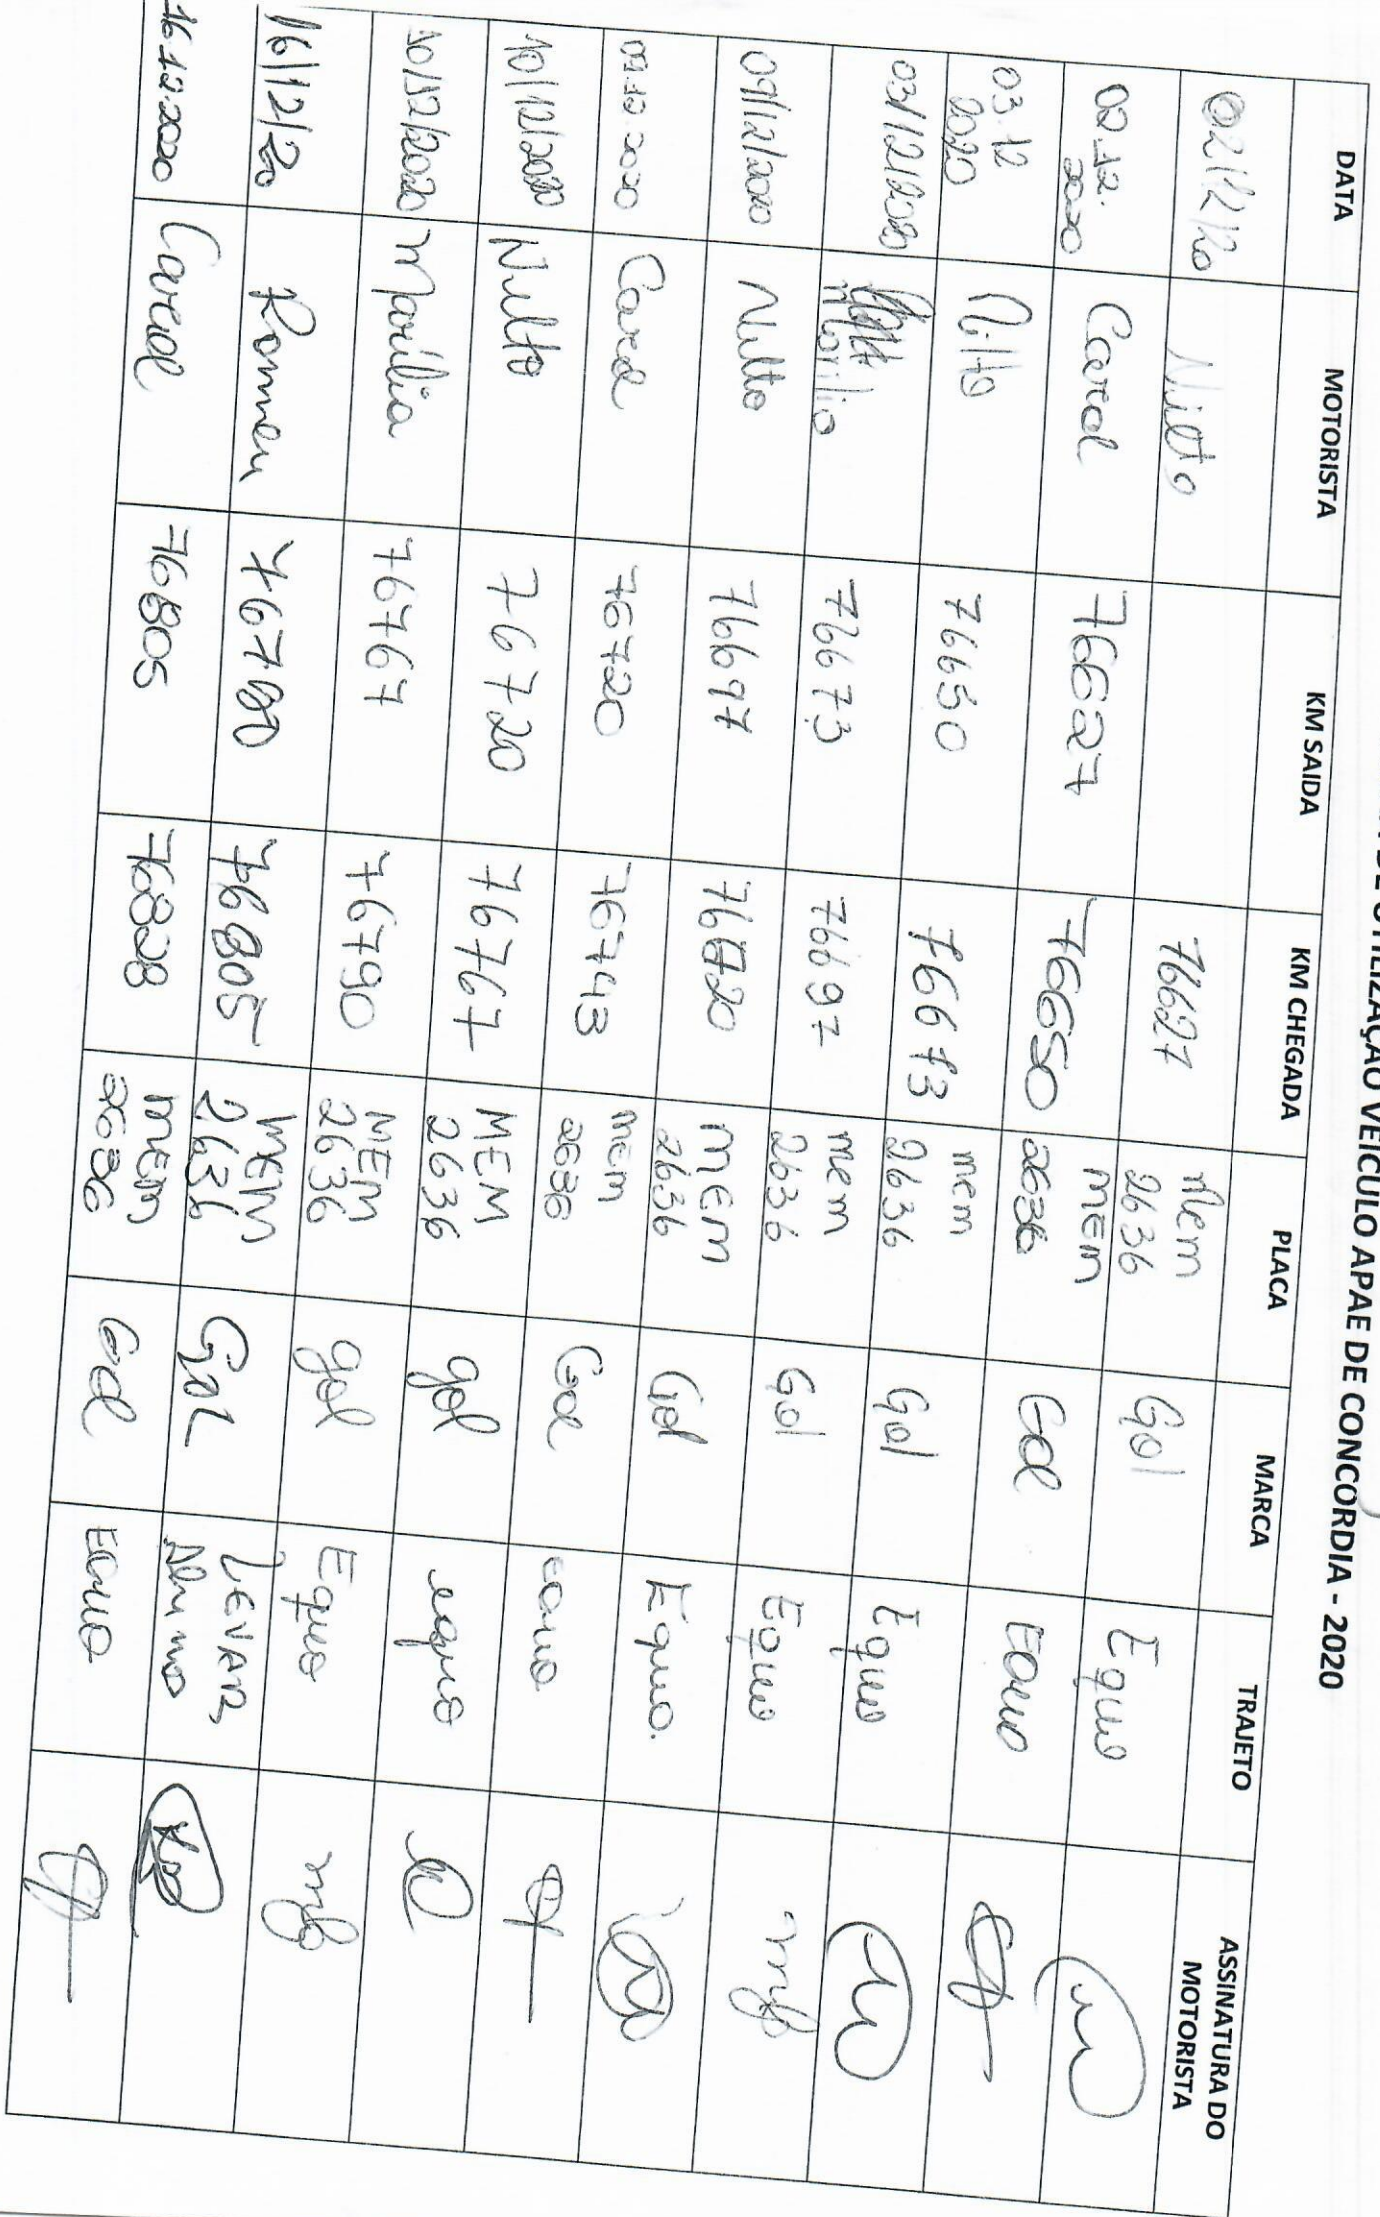 DE UTILIZAÇÃO VEICULO APAE DE CONCORDIA - 2020
DATA MOTORISTA KM SAIDA KM CHEGADA PLACA MARCA TRAJETO ASSINATURA DO MOTORISTA
02/12/20 Nilto 76627 Mem 2636 Gol Equo
02.12.2020 Carol 76627 76650 MEM 2636 Gol Equo
03.12 2020 Nilto 76650 76673 mem 2636 Gol Equo
03/12/2020 Marilia 76673 76697 mem 2636 Gol Equo
09/12/2020 Nilto 76697 76720 MEM 2636 Gol Equo.
09.12.2020 Carol 76720 76743 mem 2636 Gol Equo
10/12/2020 Nilto 76720 76767 MEM 2636 gol equo
10/12/2020 Marilia 76767 76790 MEM 2636 gol Equo
16/12/20 Rommeu 76780 76805 MEM 2636 Gol LEVAR Aluno
16.12.2020 Carol 76805 76828 MEM 2636 Gol Equo